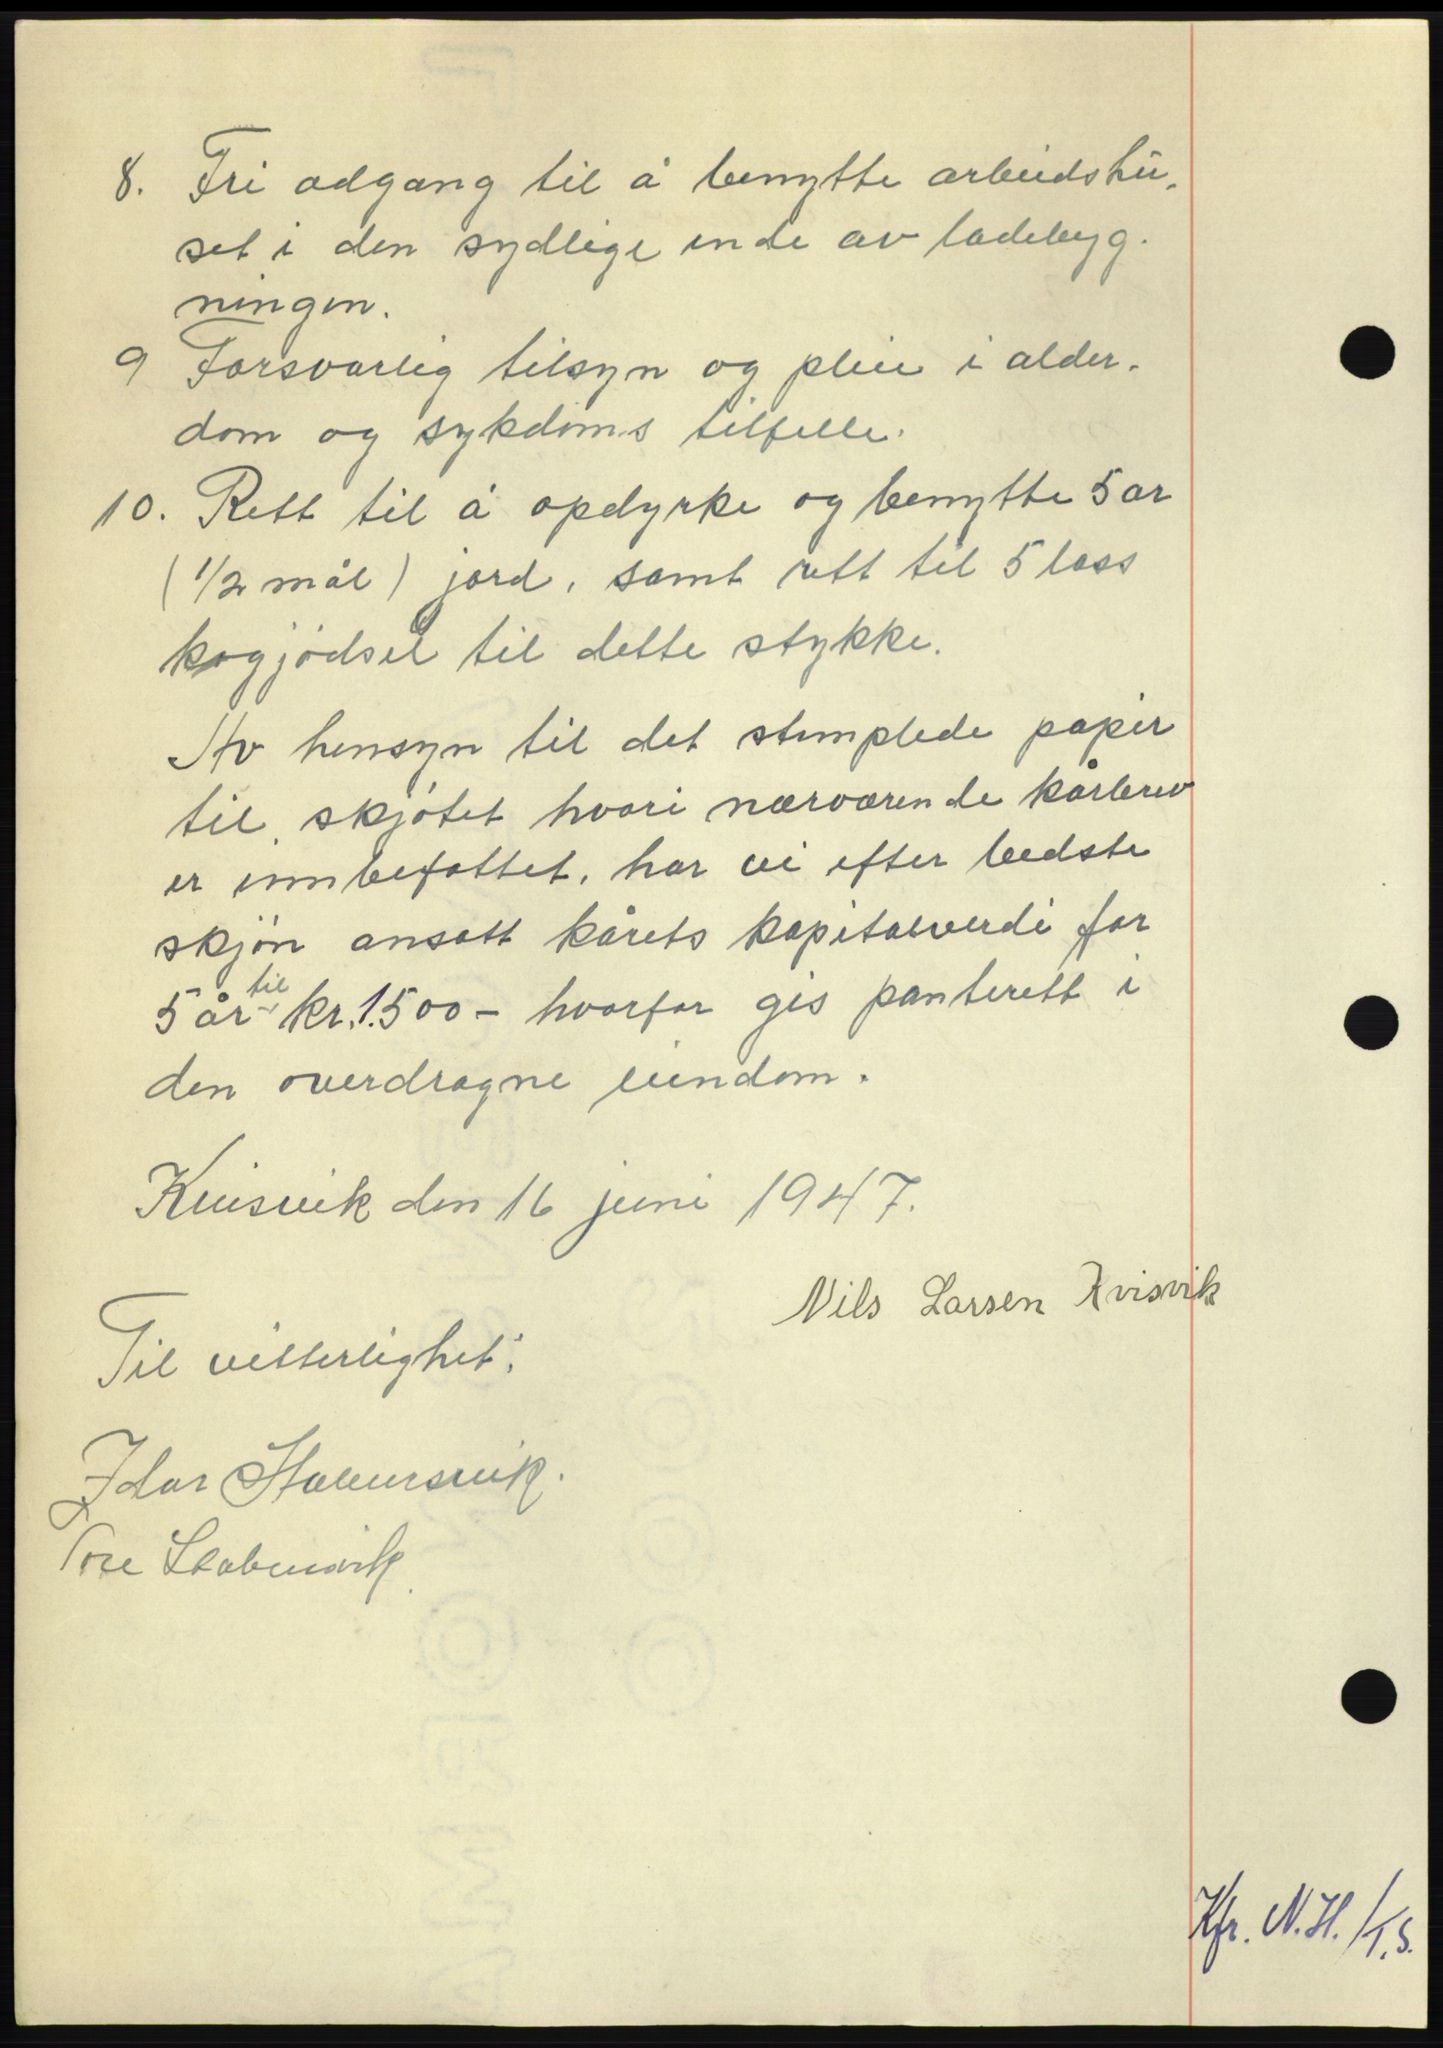 8. Fri adgang til å benytte arbeidshu-
set i den sydlige ende av ladebyg-
ningen.
9 Forsvarlig tilsyn og pleie i alder-
dom og sykdoms tilfelle.
10. Rett til å opdyrke og benytte 5 ar
(1/2 mål) jord, samt rett til 5 lass
kogjødsel til dette stykke.
Av hensyn til det stemplede papir
til skjøtet hvori nærværende kårbrev
er innbefattet, har vi efter bedste
skjøn ansatt kårets kapitalverdi for
5 år til kr. 1.500 - hvorfor gis panterett i
den overdragne eiendom.
Kvisvik den 16 juni 1947.
Nils Larsen Kvisvik
Til vitterlighet:
Idar Stabenvik.
Tore Stabenvik
Kfr. N.H./T.S.